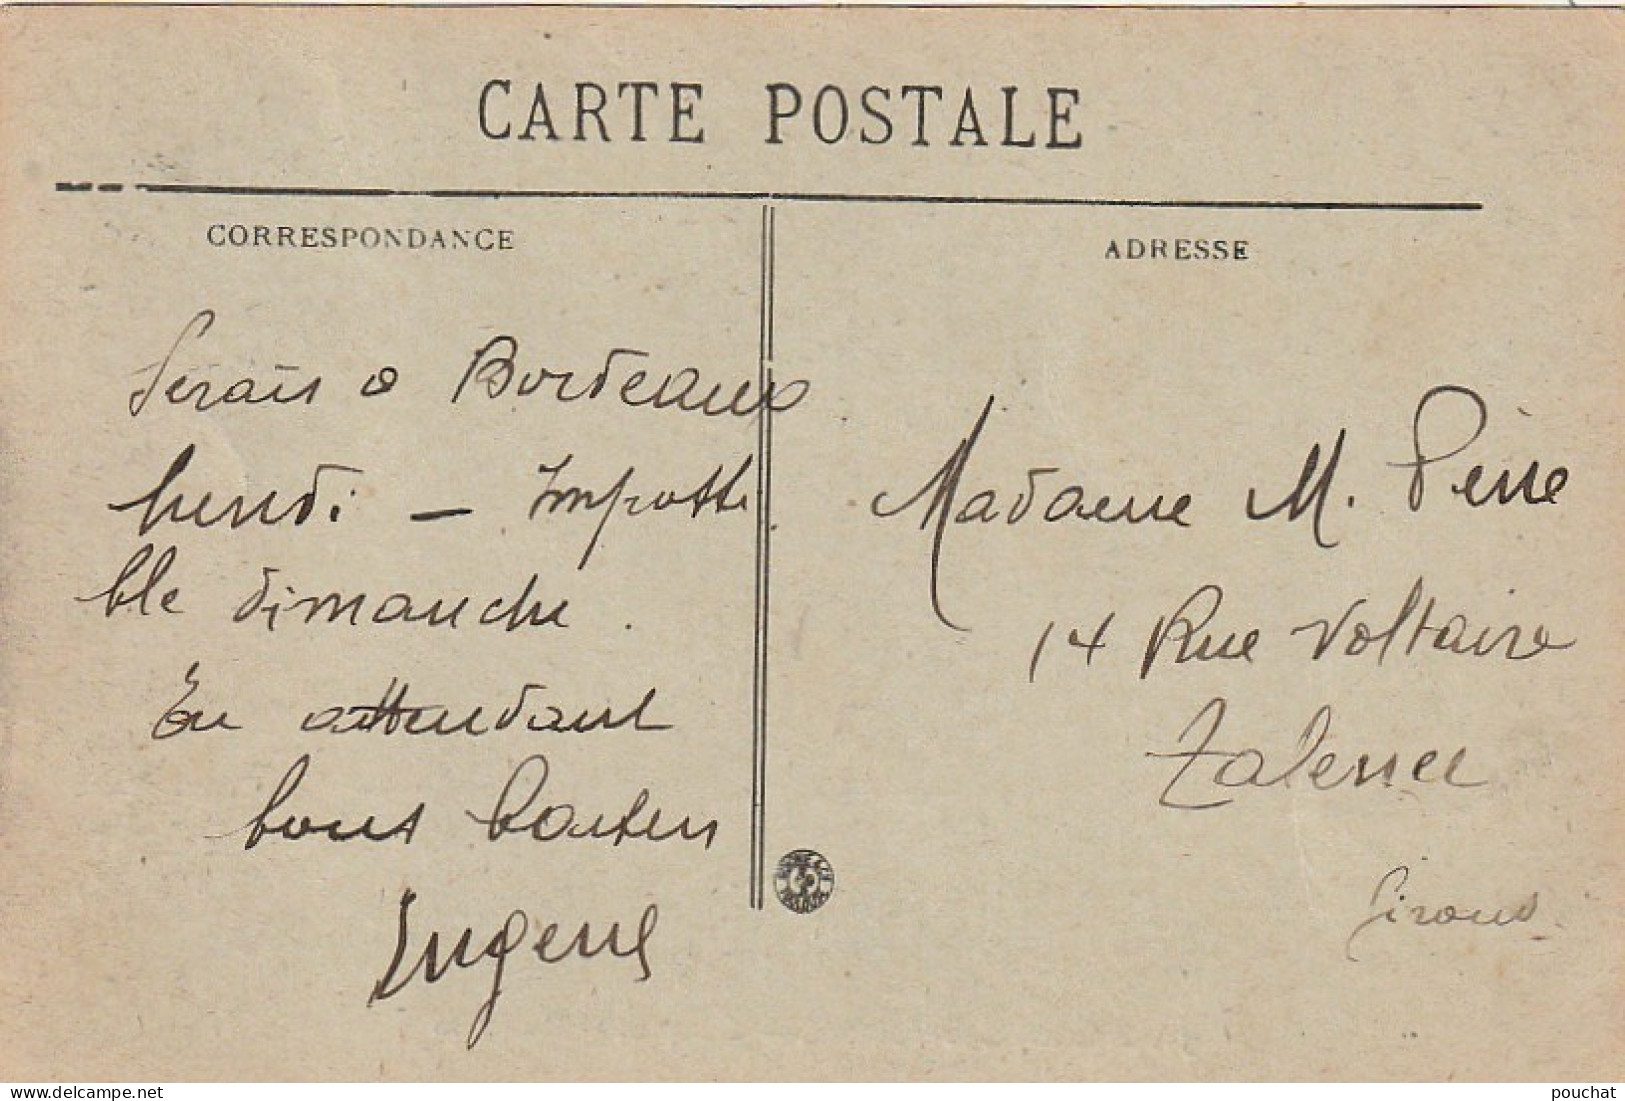 CARTE POSTALE
CORRESPONDANCE
ADRESSE
Serais à Bordeaux
lundi - Impossi
ble dimanche.
En attendant
bons baisers
Eugene
Madame M. Peine
14 Rue Voltaire
Talence
Gironde
pouchat